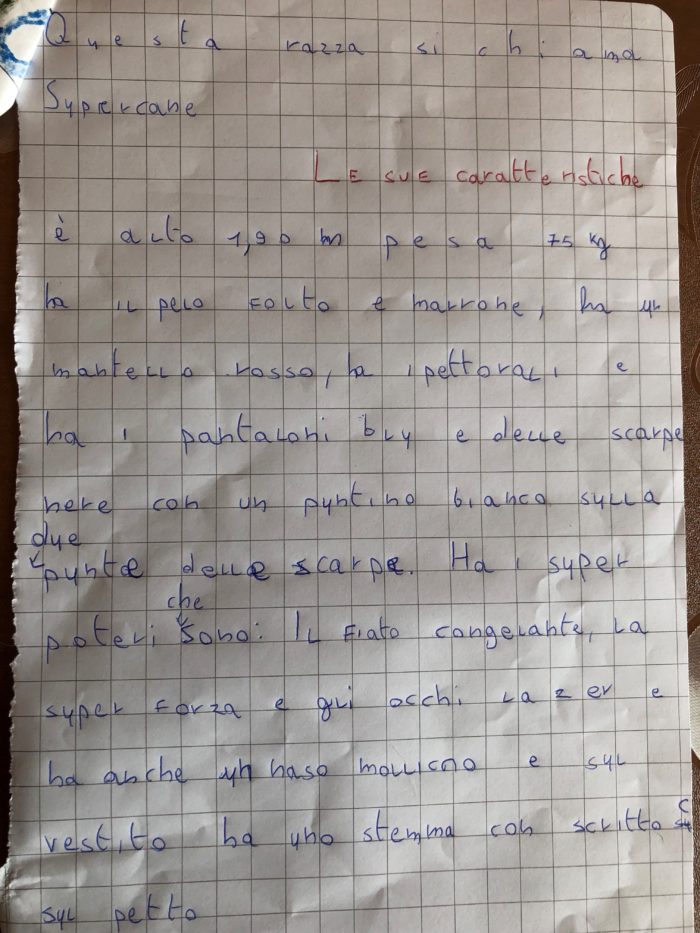 Questa razza si chiama
Supercane
Le sue caratteristiche
è alto 1,90 m pesa 75 kg
ha il pelo folto e marrone, ha un
mantello rosso, ha i pettorali e
ha i pantaloni blu e delle scarpe
nere con un puntino bianco sulla
due
punte delle scarpe. Ha i super
che
poteri sono: Il fiato congelante, la
super forza e gli occhi lazer e
ha anche un naso molliccio e sul
vestito ha uno stemma con scritto S
sul petto